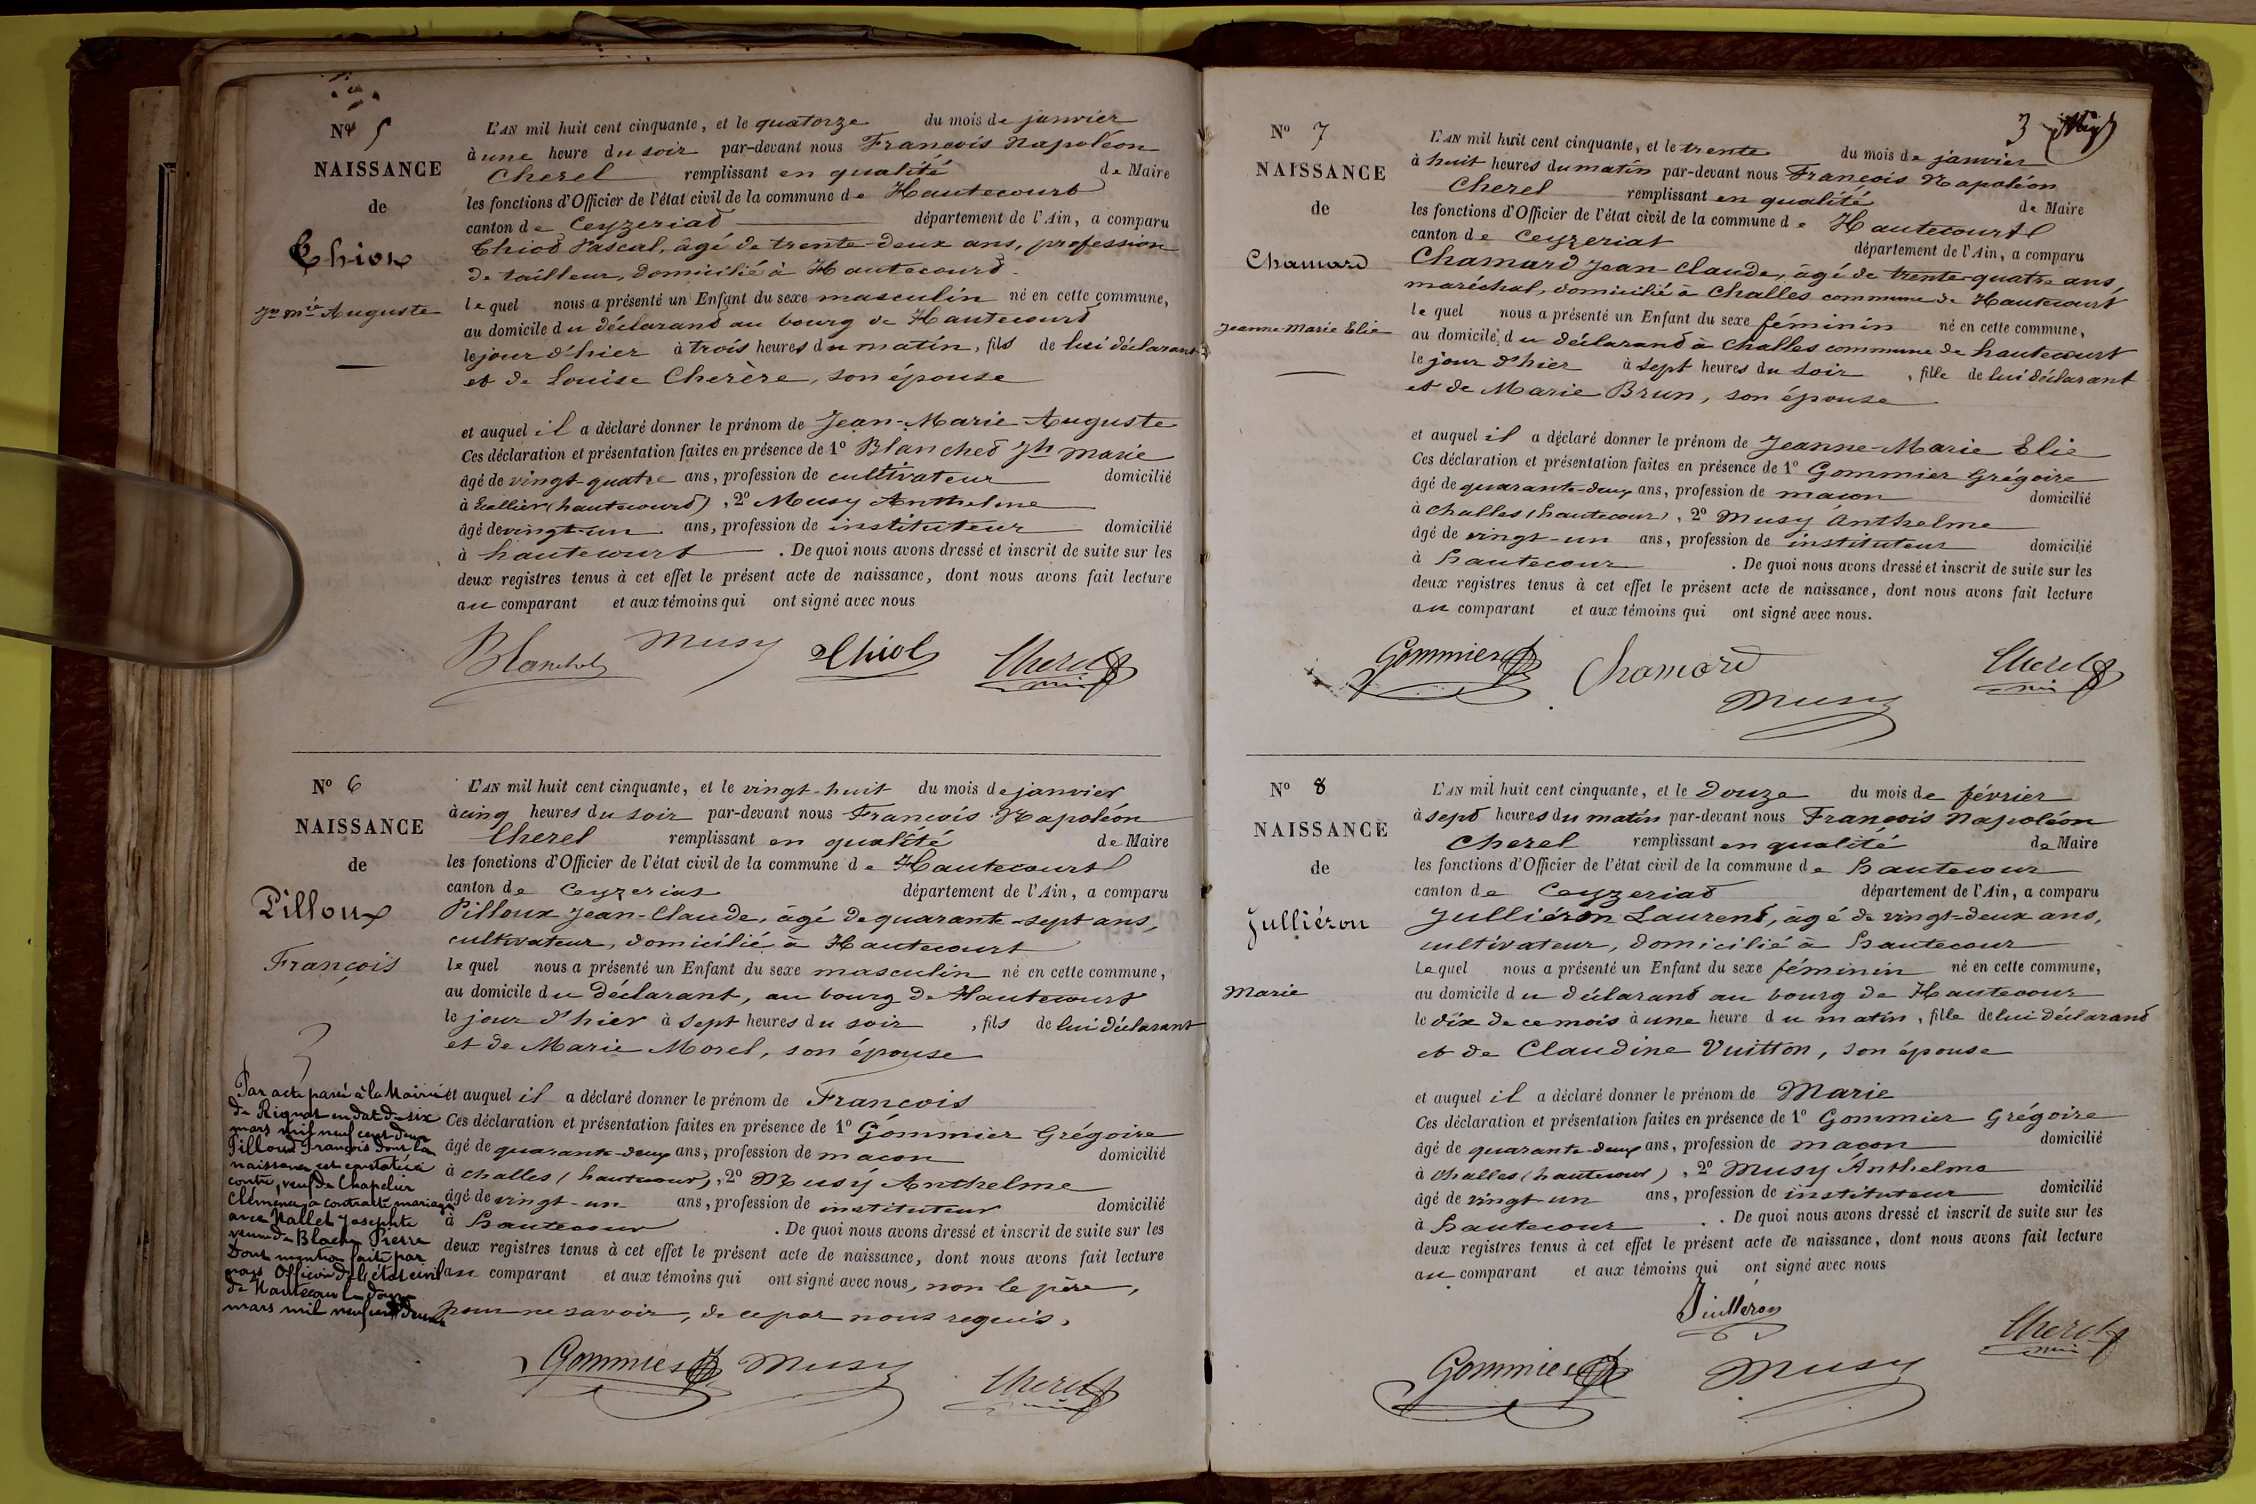 Nº 5
NAISSANCE
de
Chiot
Jn Mie Auguste
L'AN mil huit cent cinquante, et le quatorze du mois de janvier
à une heure du soir par-devant nous François Napoléon
Cherel remplissant en qualité de Maire
les fonctions d'Officier de l'état civil de la commune de Hautecourt
canton de Ceyzeriat département de l'Ain, a comparu
Chiot Pascal, âgé de trente-deux ans, profession
de tailleur, domicilié à Hautecourt.
lequel nous a présenté un Enfant du sexe masculin né en cette commune,
au domicile du déclarant au bourg de Hautecourt
le jour d'hier à trois heures du matin, fils de lui déclarant
et de Louise Cherère, son épouse
et auquel il a déclaré donner le prénom de Jean-Marie Auguste
Ces déclaration et présentation faites en présence de 1º Blanchet Jh Marie
âgé de vingt-quatre ans, profession de cultivateur domicilié
à (hautecourt), 2º Musy Anthelme
âgé de vingt-un ans, profession de instituteur domicilié
à hautecourt. De quoi nous avons dressé et inscrit de suite sur les
deux registres tenus à cet effet le présent acte de naissance, dont nous avons fait lecture
au comparant et aux témoins qui ont signé avec nous
Blanchet Musy Chiot Cherel
Nº 6
NAISSANCE
de
Pilloux
François
L'AN mil huit cent cinquante, et le vingt-huit du mois de janvier
à cinq heures du soir par-devant nous François Napoléon
Cherel remplissant en qualité de Maire
les fonctions d'Officier de l'état civil de la commune de Hautecourt
canton de Ceyzeriat département de l'Ain, a comparu
Pilloux Jean-Claude, âgé de quarante-sept ans,
cultivateur, domicilié à Hautecourt
lequel nous a présenté un Enfant du sexe masculin né en cette commune,
au domicile du déclarant, au bourg de Hautecourt
le jour d'hier à sept heures du soir, fils de lui déclarant
et de Marie Morel, son épouse
et auquel il a déclaré donner le prénom de François
Ces déclaration et présentation faites en présence de 1º Gommier Grégoire
âgé de quarante-deux ans, profession de maçon domicilié
à challes (hautecourt), 2º Musy Anthelme
âgé de vingt-un ans, profession de instituteur domicilié
à hautecour. De quoi nous avons dressé et inscrit de suite sur les
deux registres tenus à cet effet le présent acte de naissance, dont nous avons fait lecture
au comparant et aux témoins qui ont signé avec nous, non le père,
pour ne savoir, de ce par nous requis.
Gommier Musy Cherel
Par acte passé à la Mairie
de Rignat en date du six
mars mil neuf cent deux
Pilloux François dont la
naissance est constatée ci
contre, veuf de Chapelier
Clémence, a contracté mariage
avec Mallet Josephte
veuve de Pierre
Dont mention faite par
nous Officier de l'état civil
de Hautecour le douze
mars mil neuf cent deux
3
Nº 7
NAISSANCE
de
Chamard
Jeanne-Marie Elie
L'AN mil huit cent cinquante, et le trente du mois de janvier
à huit heures du matin par-devant nous François Napoléon
Cherel remplissant en qualité de Maire
les fonctions d'Officier de l'état civil de la commune de Hautecourt
canton de Ceyzeriat département de l'Ain, a comparu
Chamard Jean-Claude, âgé de trente-quatre ans,
maréchal, domicilié à Challes commune de Hautecourt
lequel nous a présenté un Enfant du sexe féminin né en cette commune,
au domicile du déclarant à Challes commune de hautecourt
le jour d'hier à sept heures du soir, fille de lui déclarant
et de Marie Brun, son épouse
et auquel il a déclaré donner le prénom de Jeanne-Marie Elie
Ces déclaration et présentation faites en présence de 1º Gommier Grégoire
âgé de quarante-deux ans, profession de maçon domicilié
à challes (hautecour), 2º Musy Anthelme
âgé de vingt-un ans, profession de instituteur domicilié
à hautecour. De quoi nous avons dressé et inscrit de suite sur les
deux registres tenus à cet effet le présent acte de naissance, dont nous avons fait lecture
au comparant et aux témoins qui ont signé avec nous.
Gommier Chamard Cherel
Musy
Nº 8
NAISSANCE
de
Julliéron
Marie
L'AN mil huit cent cinquante, et le douze du mois de février
à sept heures du matin par-devant nous François Napoléon
Cherel remplissant en qualité de Maire
les fonctions d'Officier de l'état civil de la commune de hautecour
canton de Ceyzeriat département de l'Ain, a comparu
Julliéron Laurent, âgé de vingt-deux ans,
cultivateur, domicilié à hautecour
Lequel nous a présenté un Enfant du sexe féminin né en cette commune,
au domicile du déclarant au bourg de Hautecour
le dix de ce mois à une heure du matin, fille de lui déclarant
et de Claudine Vuitton, son épouse
et auquel il a déclaré donner le prénom de Marie
Ces déclaration et présentation faites en présence de 1º Gommier Grégoire
âgé de quarante-deux ans, profession de maçon domicilié
à Challes (hautecour), 2º Musy Anthelme
âgé de vingt-un ans, profession de instituteur domicilié
à hautecour. De quoi nous avons dressé et inscrit de suite sur les
deux registres tenus à cet effet le présent acte de naissance, dont nous avons fait lecture
au comparant et aux témoins qui ont signé avec nous
Juilleron Cherel
Gommier Musy